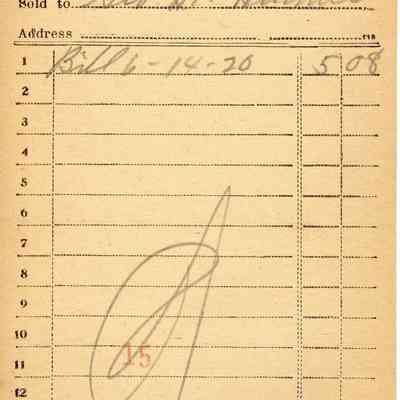 Sold to
Address
1 Bill 6-14-20 5 08
2
3
4
5
6
7
8
9
10
11 15
12